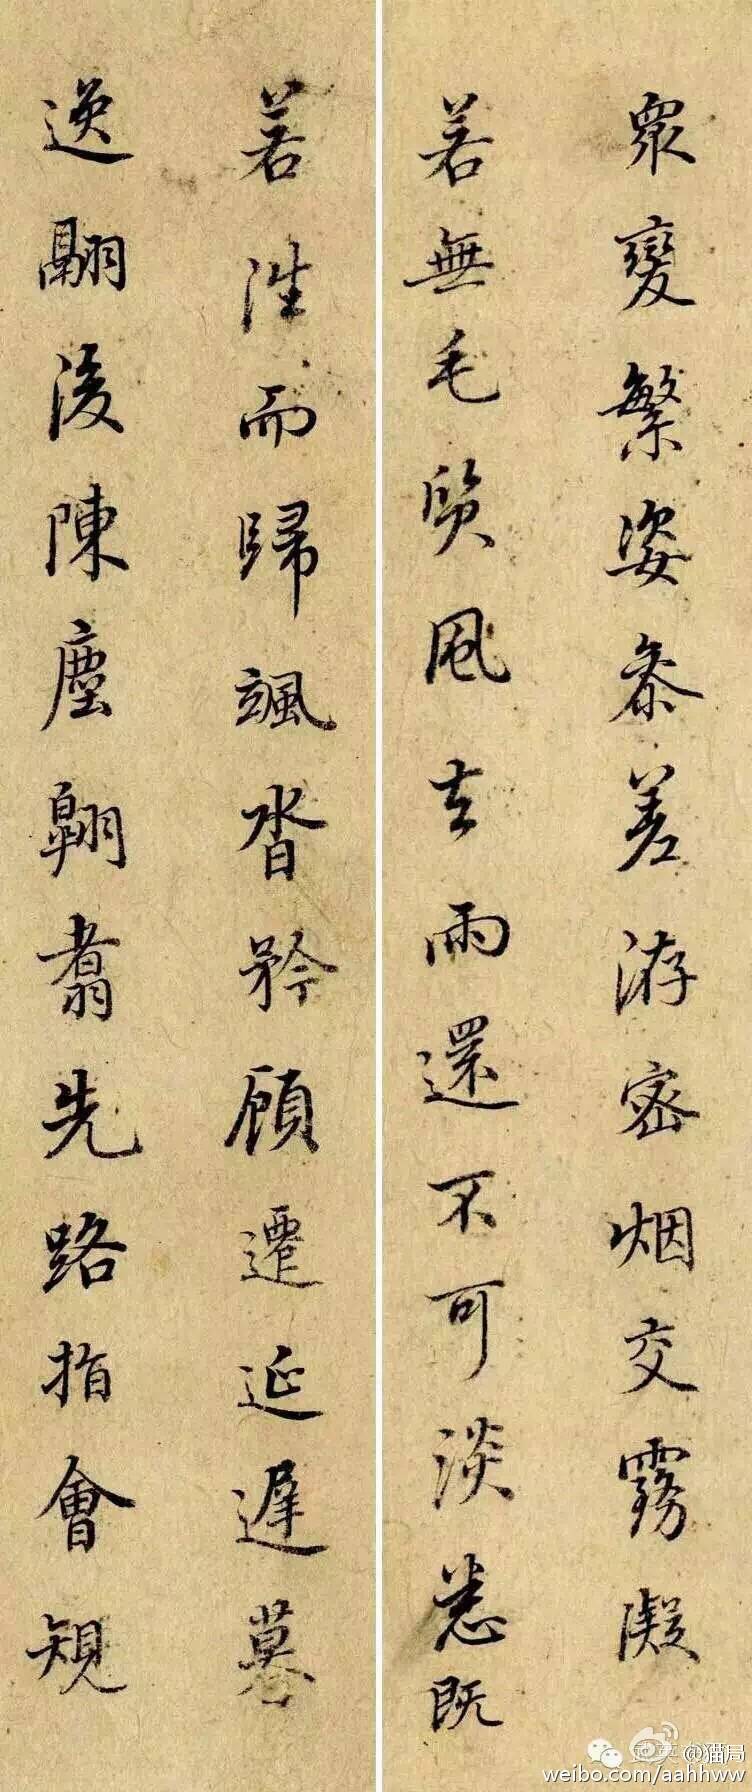 眾變繁姿叅差洊密烟交霧凝
若無毛質風去雨還不可淡悉既
若往而歸颯沓矜顧遷延遲暮
逸翮後陳塵翱翥先路指會規
@猫局
weibo.com/aahhww